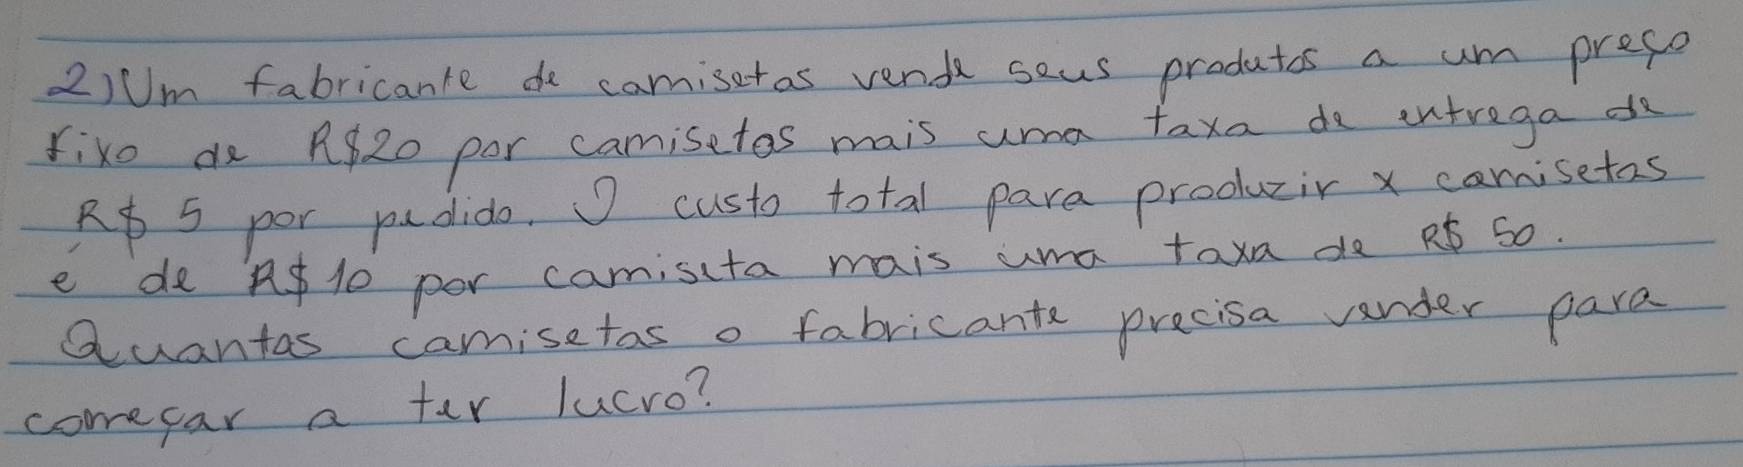 2) Um fabricante de camisetas vende seus produtos a um preço
fixo de R$20 por camisetas mais uma taxa de entrega de
R$ 5 por pedido. O custo total para produzir x camisetas
é de R$ 10 por camiseta mais uma taxa de R$ 50.
Quantas camisetas o fabricante precisa vender para
começar a ter lucro?